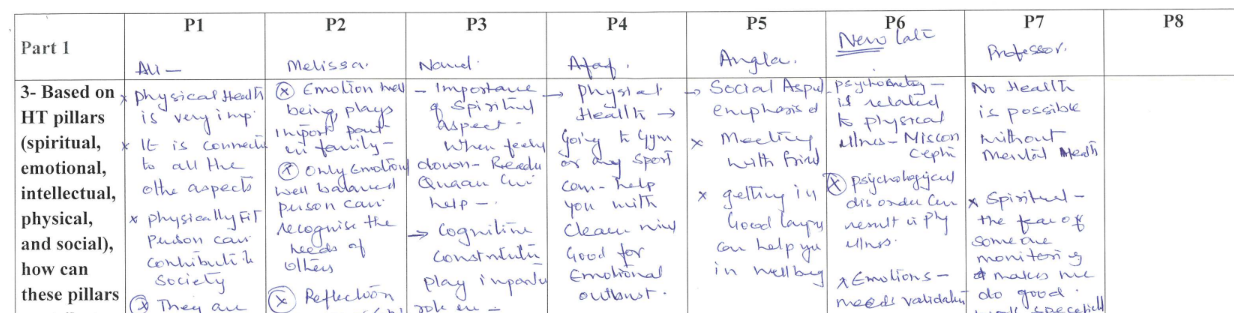 P1 P2 P3 P4 P5 P6 P7 P8
Part 1
Ali — Melissa. Afaf. Angla. New Professor.
3- Based on
HT pillars
(spiritual,
emotional,
intellectual,
physical,
and social),
how can
these pillars
x physical Health
is very imp.
x It is
to all the
othe aspects
x physically Fit
Person can
contribute to
Society
(x) They are
(x) Emotion
being, plays
import part
in family –
(x) Only emotion
well balanced
person can
recognise the
needs of
others
(x) Reflection
– Importance
of Spiritual
aspect –
When
down –
help –
→ Cognitive
play
role in –
→ physical
Health →
Going to Gym
or any sport
can – help
you with
clean mind
Good for
Emotional
outburst.
→ Social
x Meeting
with
x getting in
Good
can help you
in
is related
to physical
(x) psychological
disorder can
result in
illnes.
x Emotions –
needs
No Health
is possible
without
Mental
x Spiritual –
the fear of
someone
monitoring
makes me
do good.